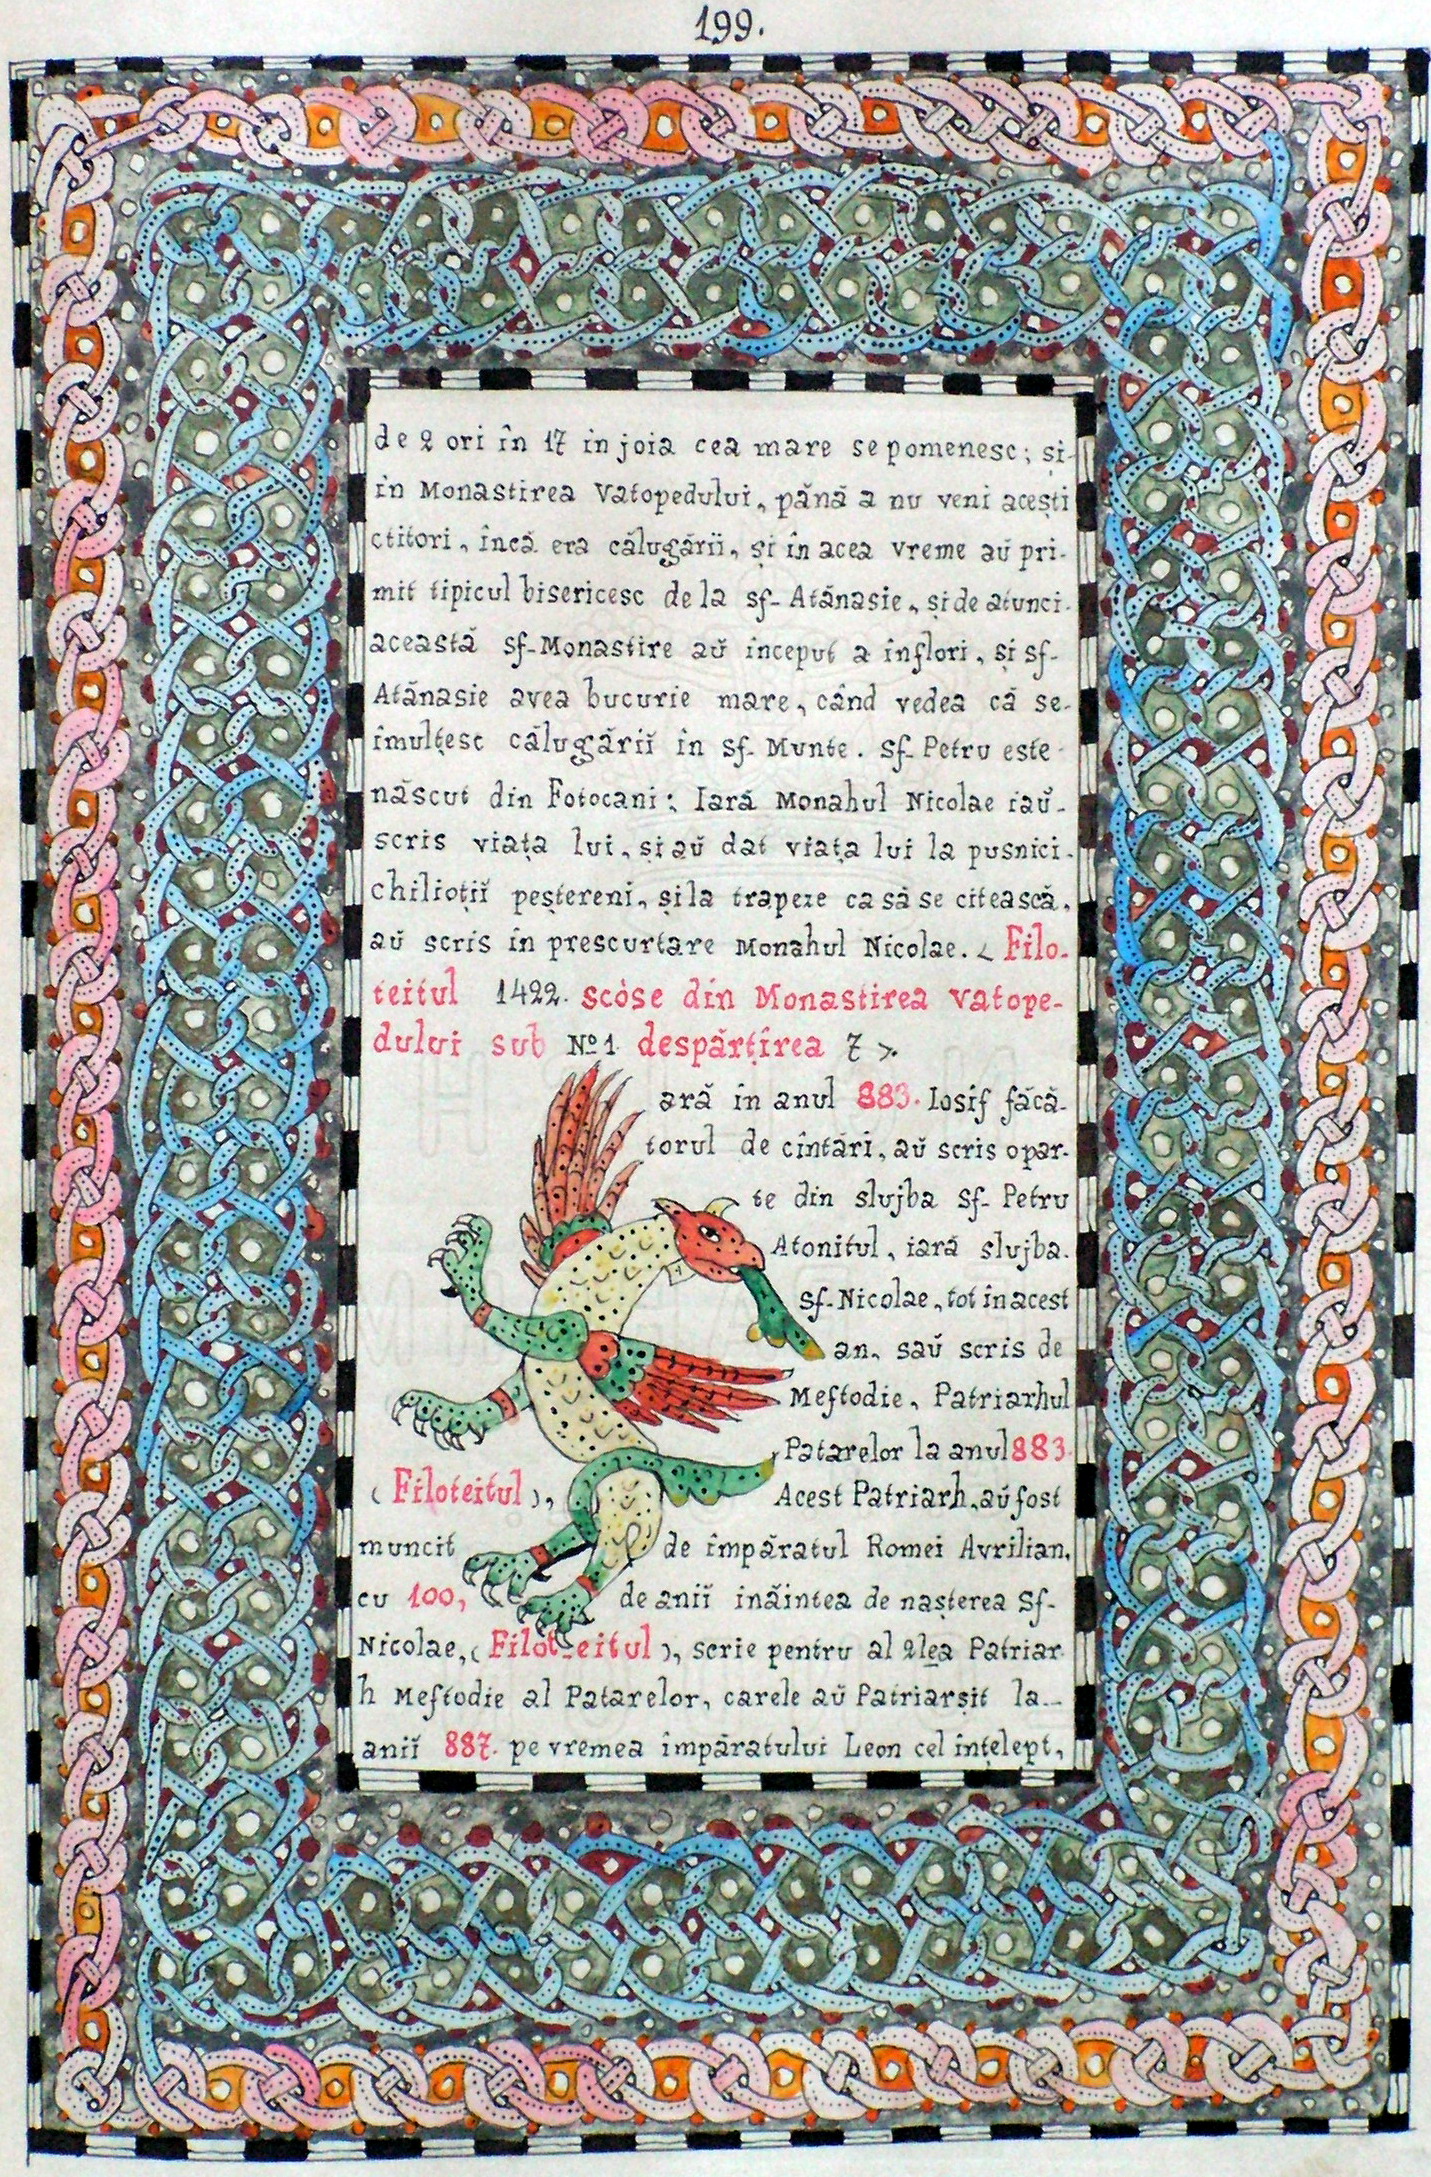 199.
de 2 ori în 17 in joia cea mare se pomenesc; și-
in Monastirea Vatopedului, până a nu veni acești
ctitori, încă era călugării, și in acea vreme aŭ pri-
mit tipicul bisericesc de la sf- Atănasie, și de atunci-
această sf-Monastire aŭ inceput a inflori, și sf-
Atănasie avea bucurie mare, când vedea că se-
imulțesc călugăriĭ in sf- Munte. sf- Petru este-
născut din Fotocani; Iară Monahul Nicolae iaŭ-
scris viața lui, și aŭ dat viața lui la pusnici-
chilioțiĭ peștereni, și la trapeze ca să se citească,
aŭ scris in prescurtare Monahul Nicolae. < Filo-
teitul 1422. scòse din Monastirea Vatope-
dului sub Nº 1 despărțîrea 7 >.
ară in anul 883. Iosif făcă-
torul de cîntări, aŭ scris opar-
te din slujba sf- Petru
Atonitul, iară slujba.
sf-Nicolae, tot in acest
an, saŭ scris de
Meftodie, Patriarhul
Patarelor la anul 883.
( Filoteitul ), Acest Patriarh, aŭ fost
muncit de împăratul Romei Avrilian,
cu 100, de aniĭ inăintea de nașterea Sf-
Nicolae, ( Filoteitul ), scrie pentru al 2lea Patriar
h Meftodie al Patarelor, carele aŭ Patriarșit la-
aniĭ 887. pe vremea împăratului Leon cel ințelept,